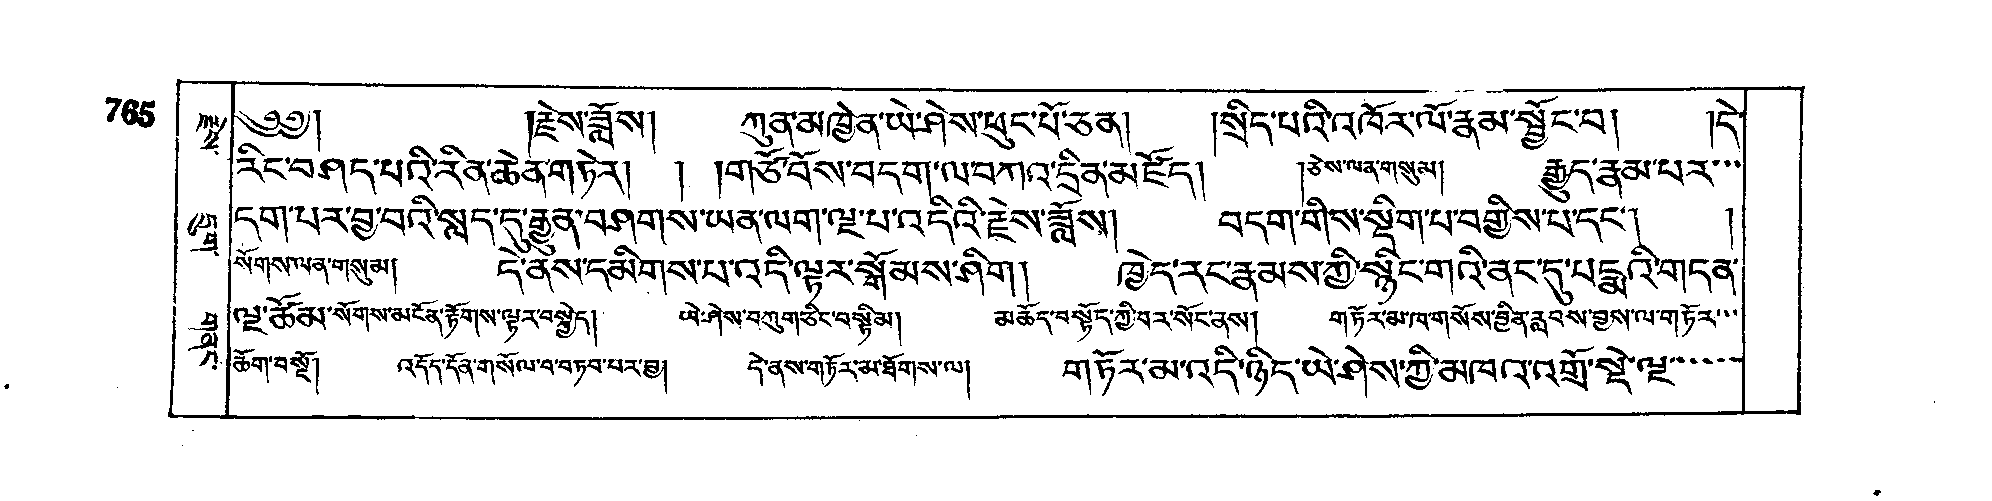 765
༄༅། །རྗེས་ཟློས། ཀུན་མཁྱེན་ཡེ་ཤེས་ཕུང་པོ་ཅན། །སྲིད་པའི་འཁོར་ལོ་རྣམ་སྦྱོང་བ། །དེ་
རིང་བཤད་པའི་རིན་ཆེན་གཏེར། ། །གཙོ་བོས་བདག་ལ་བཀའ་དྲིན་མཛོད། །ཅེས་ལན་གསུམ། རྒྱུད་རྣམ་པར་
དག་པར་བྱ་བའི་སླད་དུ་རྒྱུན་བཤགས་ཡན་ལག་ལྔ་པ་འདིའི་རྗེས་ཟློས། བདག་གིས་སྡིག་པ་བགྱིས་པ་དང་། །
སོགས་ལན་གསུམ། དེ་ནས་དམིགས་པ་འདི་ལྟར་སྒོམས་ཤིག། ཁྱེད་རང་རྣམས་ཀྱི་སྙིང་གའི་ནང་དུ་པདྨའི་གདན་
ལྔ་ཚོམ་སོགས་མངོན་རྟོགས་ལྟར་བསྐྱེད། ཡེ་ཤེས་བཀུག་ཅིང་བསྟིམ། མཆོད་བསྟོད་ཀྱི་བར་སོང་ནས། གཏོར་མ་ཁ་གསོས་བྱིན་རླབས་བྱས་ལ་གཏོར་
ཆོག་བསྔོ། འདོད་དོན་གསོལ་བ་བཏབ་པར་བྱ། དེ་ནས་གཏོར་མ་ཐོགས་ལ། གཏོར་མ་འདི་ཉིད་ཡེ་ཤེས་ཀྱི་མཁའ་འགྲོ་སྡེ་ལྔ་